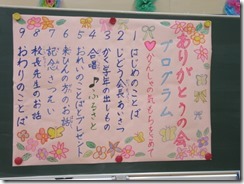 ありがとうの会
プログラム
かんしゃの気もちをこめて
1 はじめのことば
2 じどう会長あいさつ
3 かく学年の出しもの
4 合唱♪ふるさと
5 おれいのことばとプレゼント
6 来ひんの方のお話
7 記念さつえい
8 校長先生のお話
9 おわりのことば